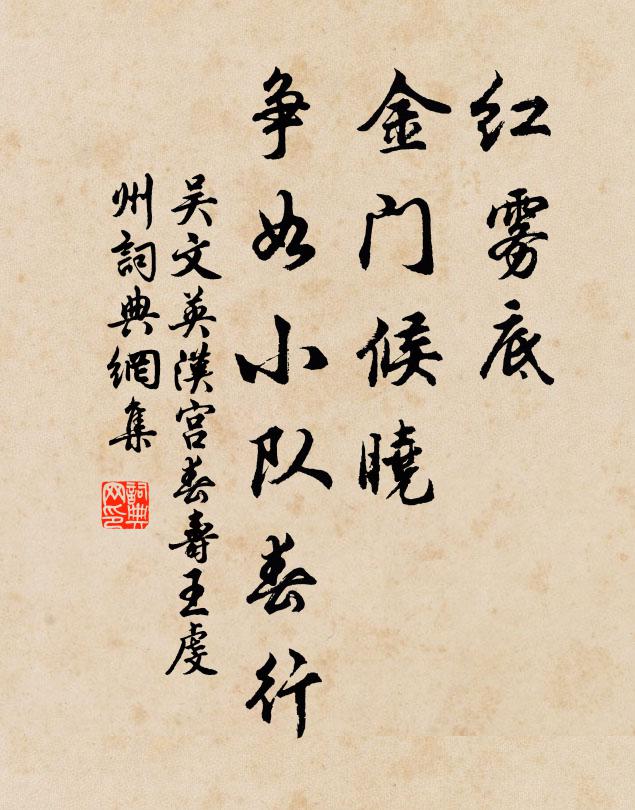 红雾底
金门候晓
争如小队春行
吴文英漢宫春壽王虔
州詞典網集
詞典
网印